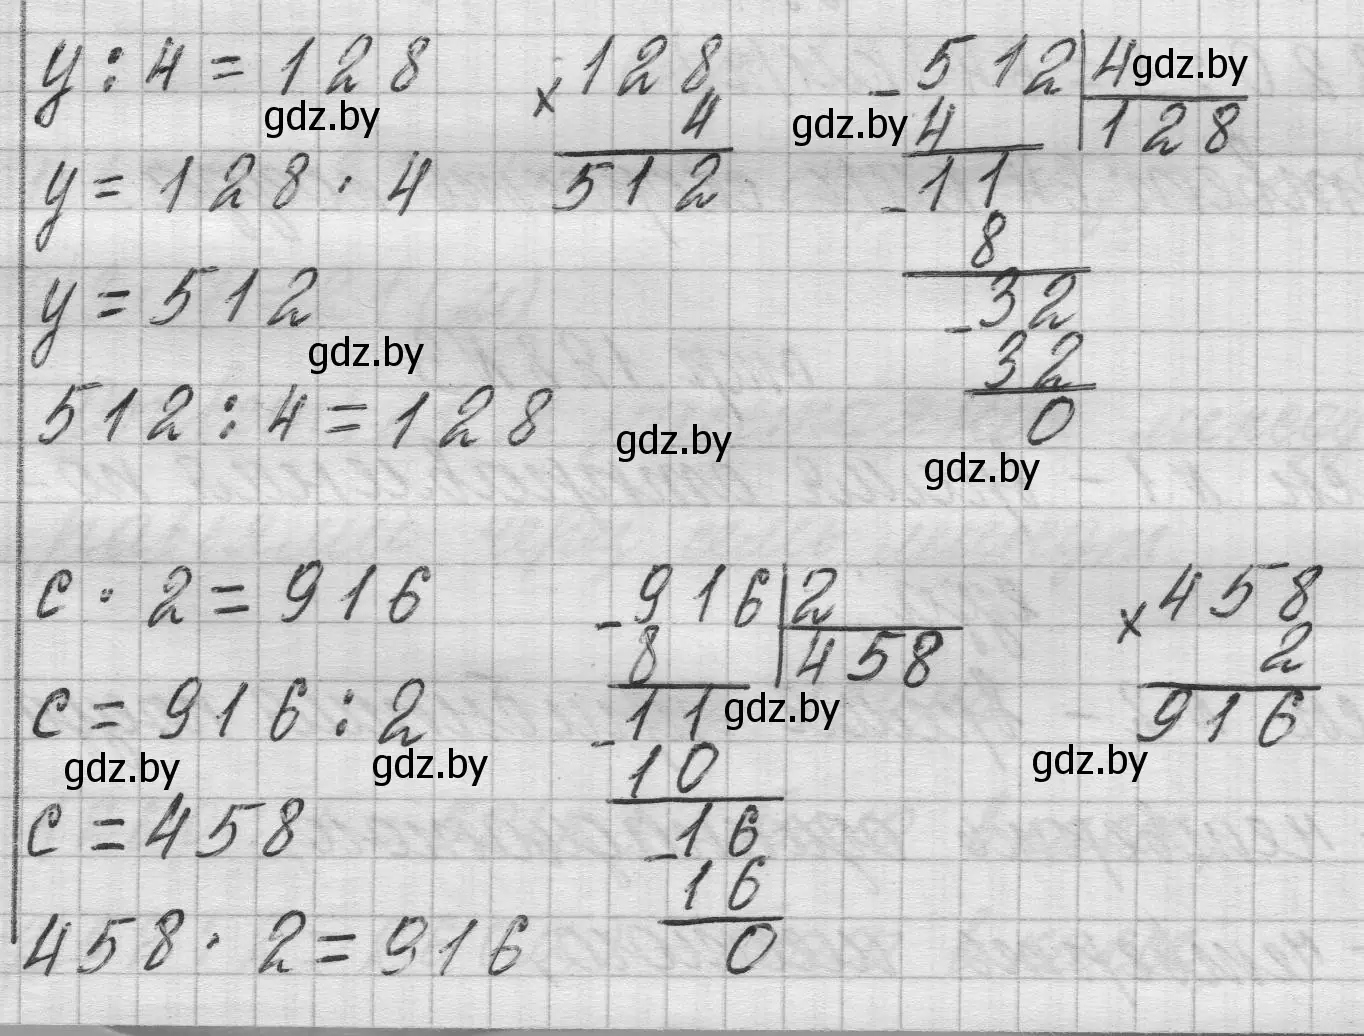 y : 4 = 128
y = 128 · 4
y = 512
512 : 4 = 128
× 128
4
512
- 512 | 4
4 128
- 11
8
- 32
32
0
c · 2 = 916
c = 916 : 2
c = 458
458 · 2 = 916
- 916 | 2
8 458
- 11
10
- 16
16
0
× 458
2
916
gdz.by
gdz.by
gdz.by
gdz.by
gdz.by
gdz.by
gdz.by
gdz.by
gdz.by
gdz.by